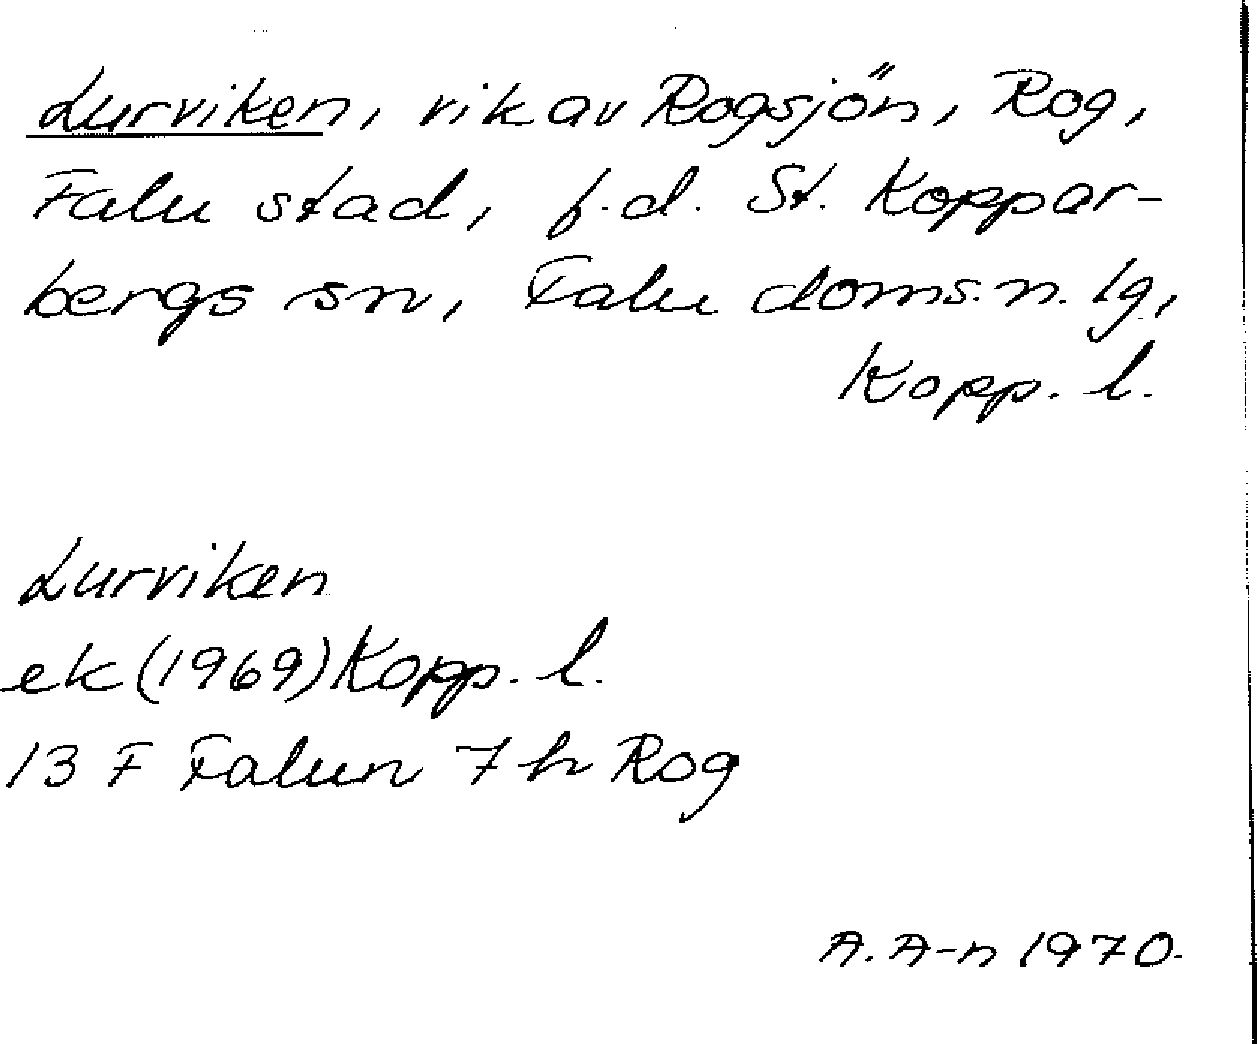 Lurviken, vik av Rogsjön, Rog,
Falu stad, f.d. St. Koppar-
bergs sn, Falu doms.n. lg,
Kopp. l.
Lurviken
ek (1969) Kopp. l.
13 F Falun 7 h Rog
A. A-n 1970.